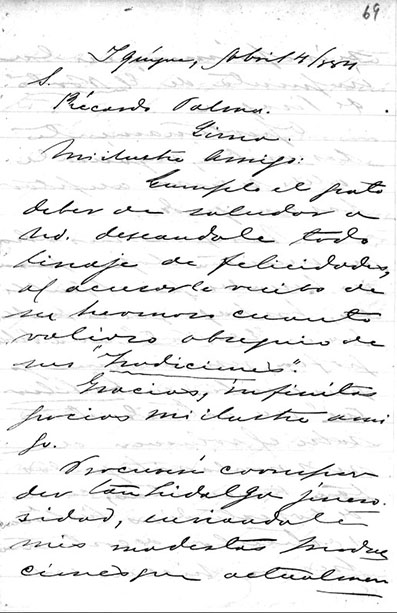 69
Iquique, Abril 4/884
S.
Ricardo Palma.
Lima.
Mi ilustre amigo:
Cumplo el grato
deber de saludar a
Ud. deseandole todo
linaje de felicidades,
al acusarle recibo de
su hermoso cuanto
valioso obsequio de
sus "Tradiciones".
Gracias, infinitas
gracias mi ilustre ami
go.
Procuraré correspon
der tan hidalga jenero
sidad, enviandole
mis modestas produc
ciones que actualmen